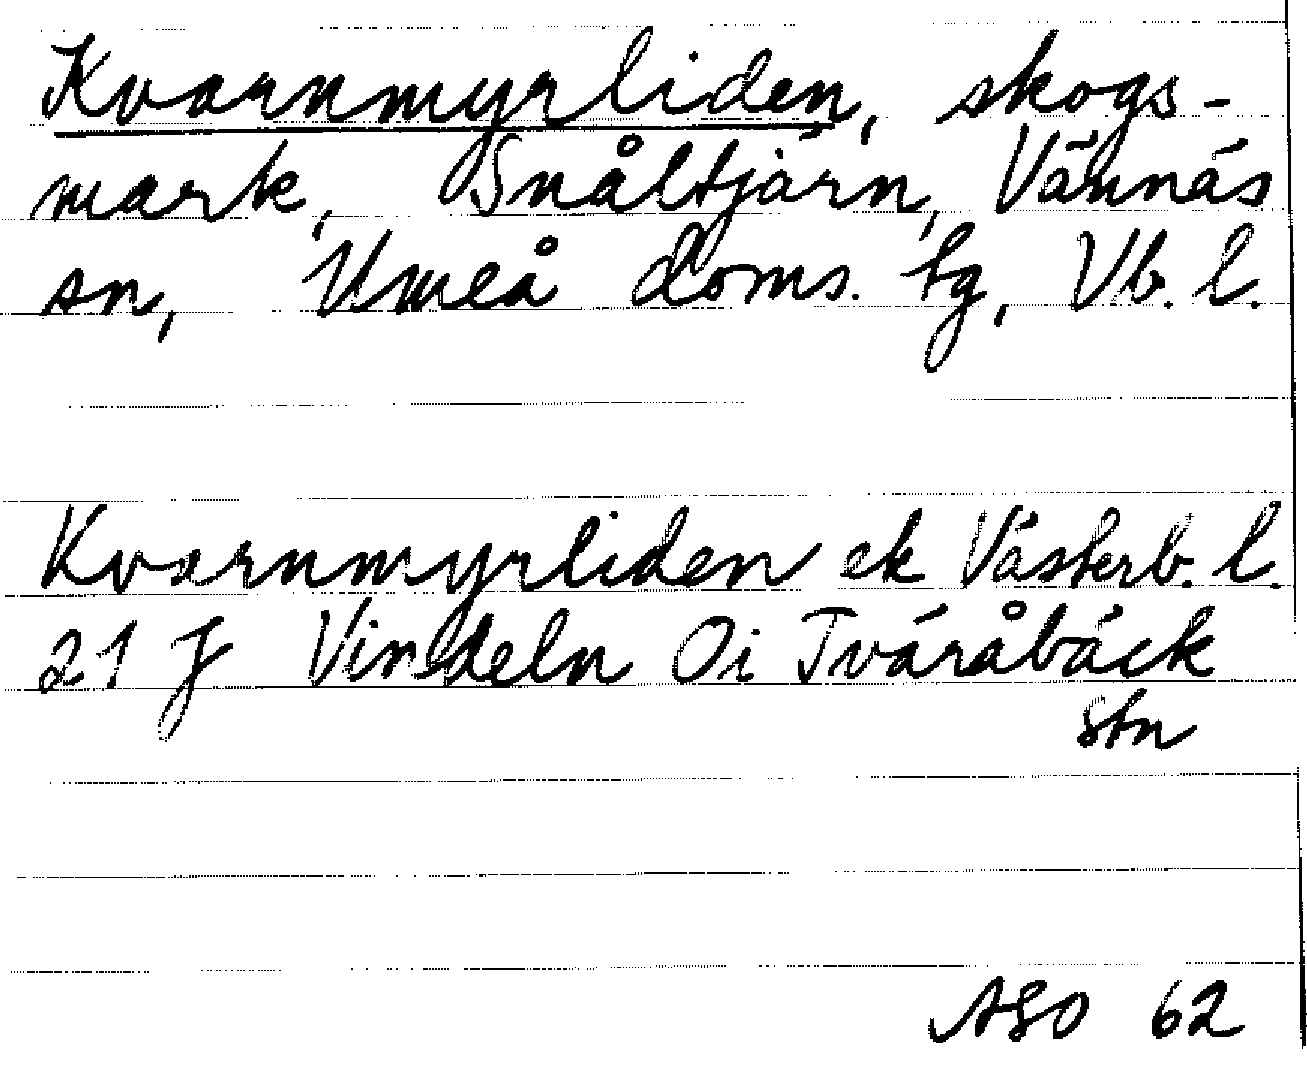 Kvarnmyrliden, skogs-
mark, Snåltjärn, Vännäs
sn, Umeå doms. tg, Vb. l.
Kvarnmyrliden ek Västerb. l.
21 J Vindeln Oi Tväråbäck
stn
ASO 62